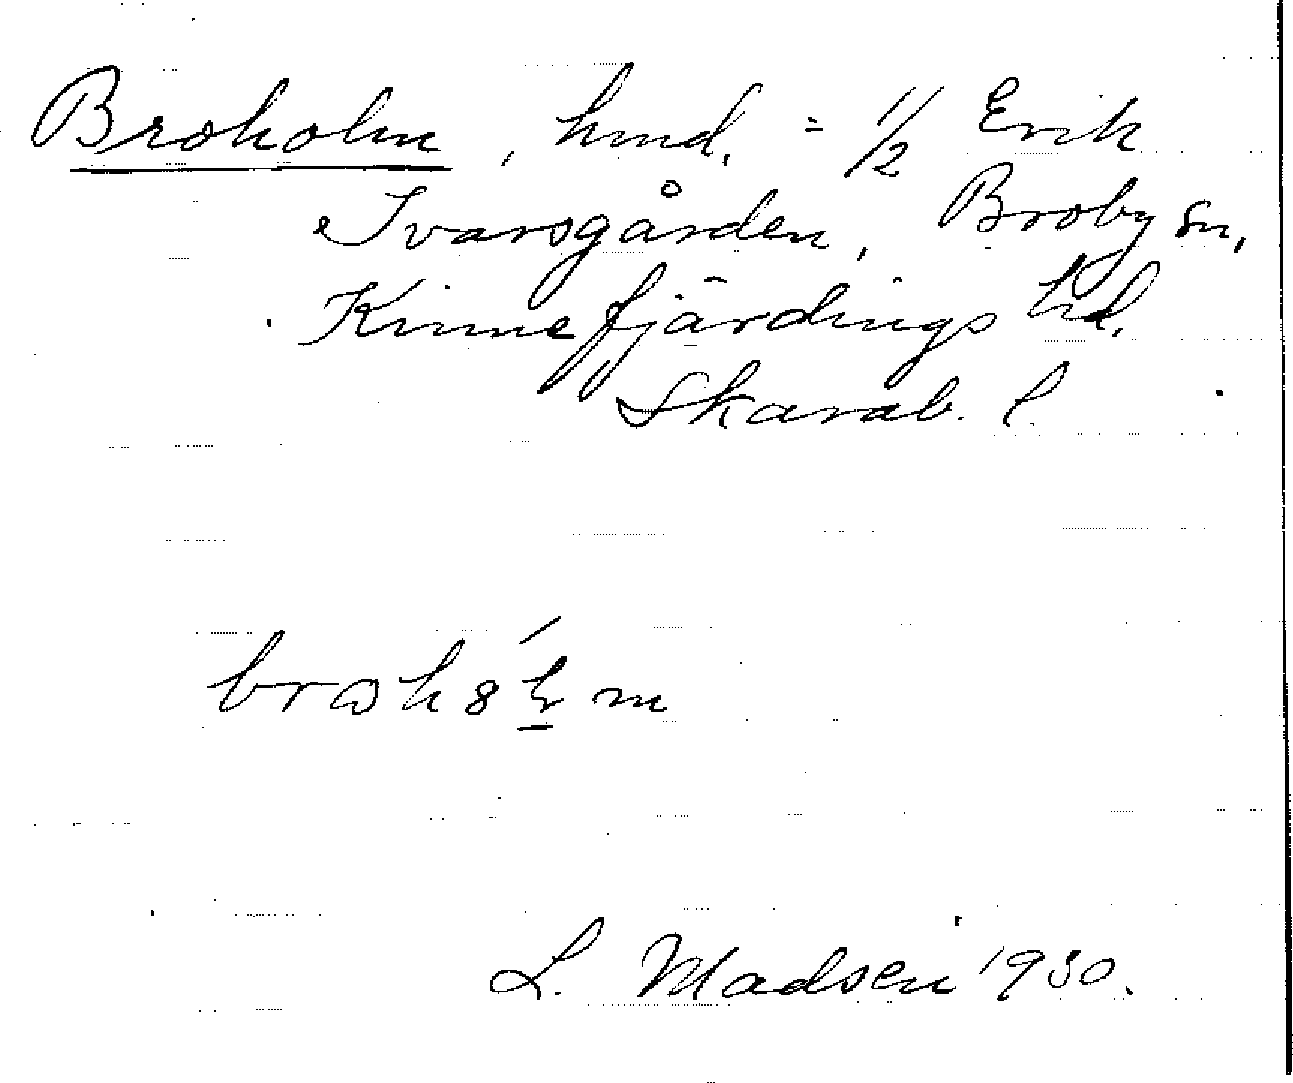 Broholm, hmd. = 1/2 Erik
Ivarsgården, Broby sn,
Kinnefjärdings hd.
Skarab. l.
L. Madsen 1930.